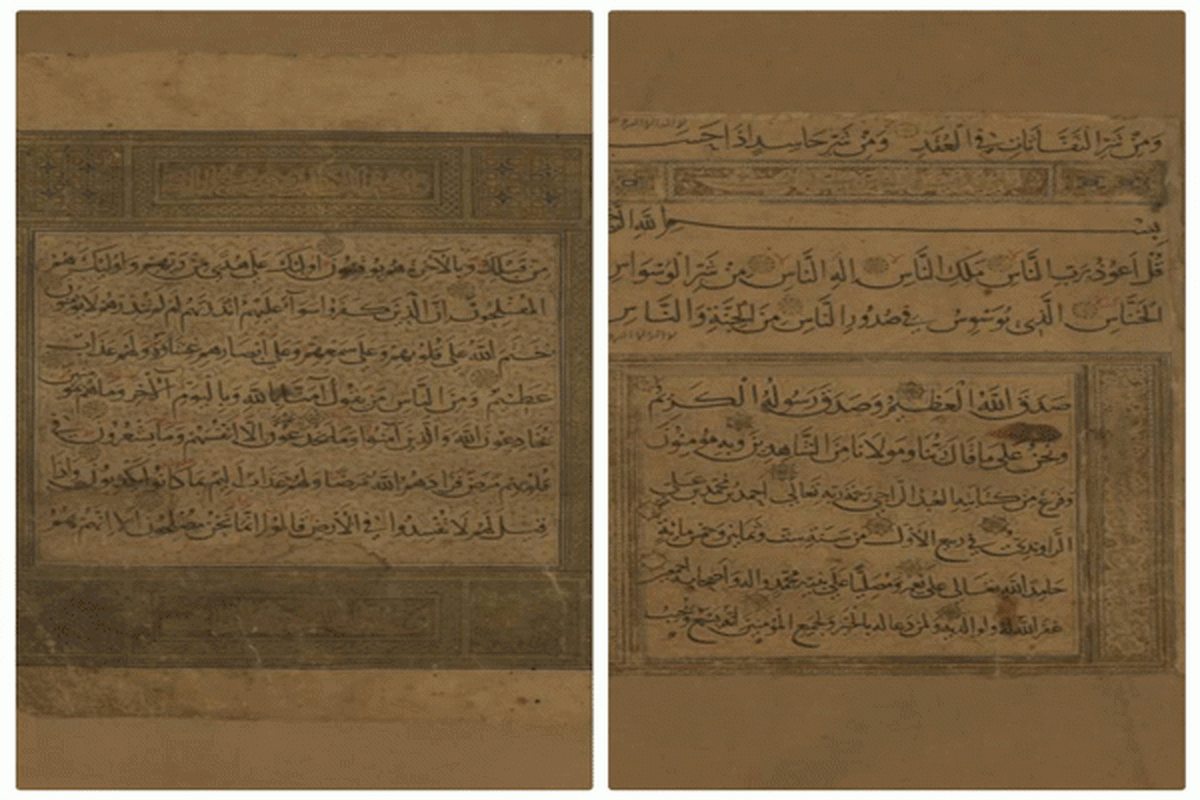 من قبلك وبالآخرة هم يوقنون اولئك على هدى من ربهم واولئك هم
المفلحون ان الذين كفروا سواء عليهم اانذرتهم ام لم تنذرهم لا يؤمنون
ختم الله على قلوبهم وعلى سمعهم وعلى ابصارهم غشاوة ولهم عذاب
عظيم ومن الناس من يقول آمنا بالله وباليوم الآخر وما هم بمؤمنين
يخادعون الله والذين آمنوا وما يخدعون الا انفسهم وما يشعرون في
قلوبهم مرض فزادهم الله مرضا ولهم عذاب اليم بما كانوا يكذبون واذا
قيل لهم لا تفسدوا في الارض قالوا انما نحن مصلحون الا انهم هم
وَمِنْ شَرِّ النَّفَّاثَاتِ فِي الْعُقَدِ وَمِنْ شَرِّ حَاسِدٍ اِذَا حَسَدَ
بسم الله
قُلْ اَعُوذُ بِرَبِّ النَّاسِ مَلِكِ النَّاسِ اِلهِ النَّاسِ مِنْ شَرِّ الْوَسْوَاسِ
الْخَنَّاسِ الَّذِي يُوَسْوِسُ فِي صُدُورِ النَّاسِ مِنَ الْجِنَّةِ وَالنَّاسِ
صَدَقَ اللهُ الْعَظِيمُ وَصَدَقَ رَسُولُهُ الْكَرِيمُ
ونحن على ما قال ربنا ومولانا من الشاهدين وبه مؤمنون
وفرغ من كتابته العبد الراجي رحمة ربه تعالى احمد بن محمد بن علي
الراوندي في ربيع الاول من سنة ست وثمانين وخمس مائة
حامدا لله تعالى على نعمه ومصليا على نبيه محمد وآله واصحابه اجمعين
غفر الله له ولوالديه ولمن دعا له بالخير ولجميع المؤمنين